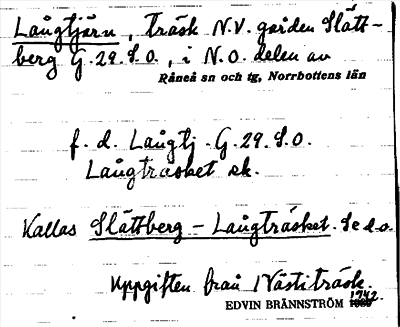 Långtjärn, träsk N.V. gården Slätt-
berg G.29.S.O., i N.O. delen av
Råneå sn och tg, Norrbottens län
f.d. Långtj. G.29.S.O.
Långträsket sk.
Kallas Slättberg - Långträsket. Se d.o.
Uppgiften från Västiträsk
EDVIN BRÄNNSTRÖM 1942.